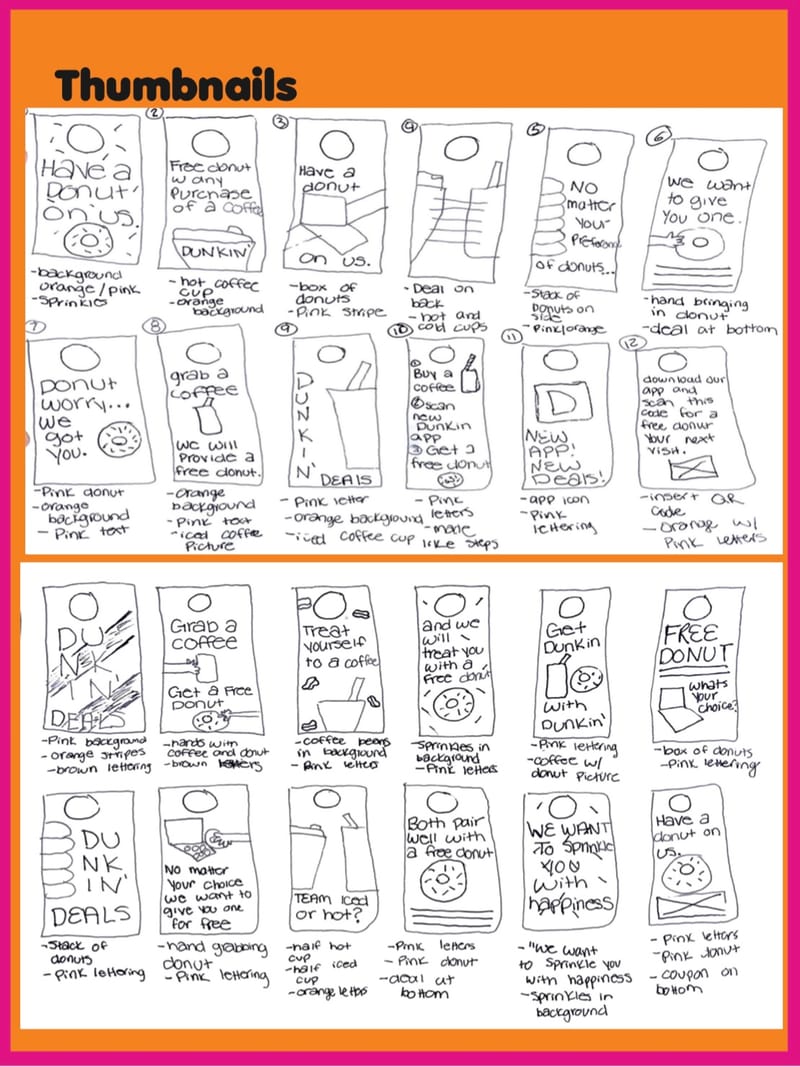 Thumbnails
②
③
④
⑤
⑥
Have a
Donut
on us.
Free donut
w any
Purchase
of a coffee
DUNKIN'
Have a
donut
on us.
NO
matter
Your
of donuts...
We want
to give
You one.
-background
orange/pink
-sprinkles
- hot coffee
cup
-orange
background
-box of
donuts
-Pink stripe
- Deal on
back
- hot and
cold cups
-Stack of
Donuts on
side
- Pink/orange
-hand bringing
in donut
-deal at bottom
⑦
⑧
⑨
⑩
⑪
⑫
Donut
worry...
we
got
you.
grab a
coffee
we will
Provide a
free donut.
DUNKIN'
DEALS
①
Buy a
coffee
②scan
new
Dunkin
app
③Get a
free donut
D
NEW
APP!
NEW
Deals!
download our
app and
scan this
code for a
free donut
Your next
visit.
-Pink donut
-orange
background
- Pink text
-orange
background
-Pink text
-iced coffee
Picture
- Pink letter
-orange background
-iced coffee cup
- Pink
letters
-made
like steps
-app icon
-Pink
lettering
-insert QR
code
- orange w/
Pink letters
DU
NK
IN'
DEALS
Grab a
coffee
Get a Free
Donut
Treat
yourself
to a coffee
and we
will
treat you
with a
free donut
Get
Dunkin
with
Dunkin'
FREE
DONUT
whats
your
choice?
-Pink background
- orange stripes
-brown lettering
-hands with
coffee and donut
-brown
-coffee beans
in background
- Pink letters
-Sprinkles in
background
-Pink letters
-Pink lettering
-coffee w/
donut Picture
-box of donuts
-Pink lettering
DU
NK
IN'
DEALS
No matter
Your choice
we want to
give you one
for free
TEAM Iced
or hot?
Both pair
well with
a free donut
WE WANT
To Sprinkle
YOU
with
happiness
Have a
donut on
us.
-Stack of
donuts
- Pink lettering
-hand grabbing
donut
- Pink lettering
-half hot
cup
-half iced
cup
-orange
-Pink letters
- Pink donut
-deal at
bottom
-"We want
to Sprinkle you
with happiness
-Sprinkles in
background
- Pink letters
-Pink donut
- coupon on
bottom